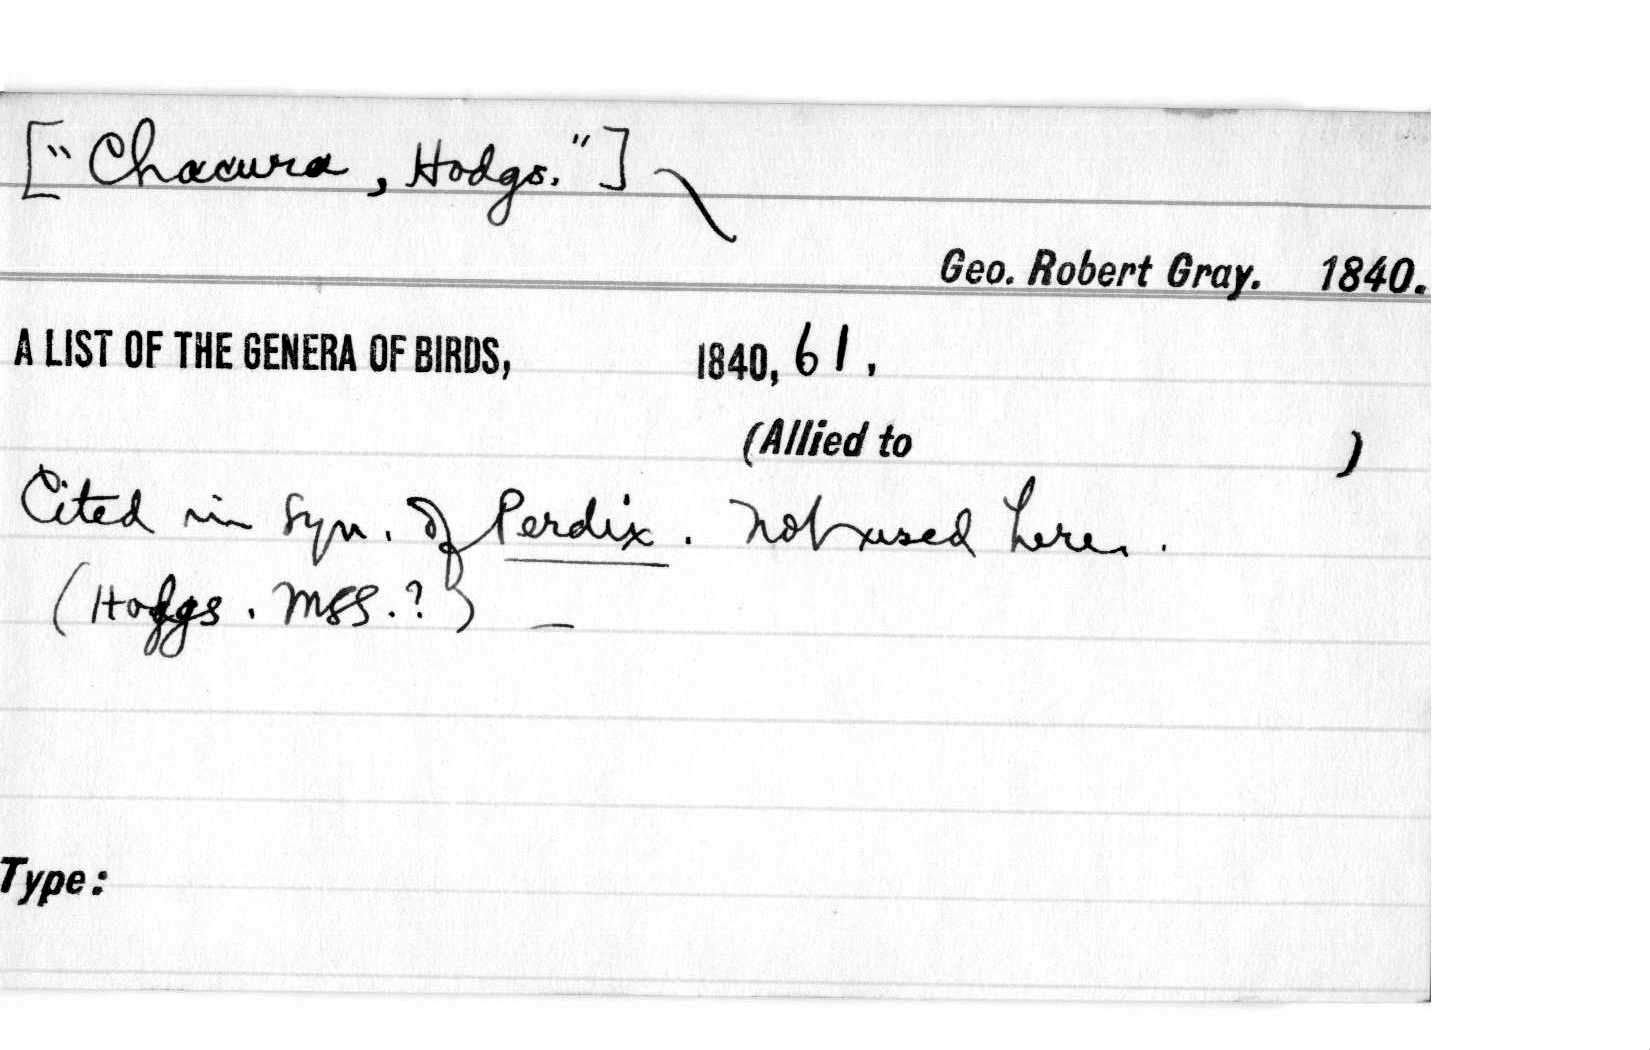 ["Chacura, Hodgs."]
Geo. Robert Gray. 1840.
A LIST OF THE GENERA OF BIRDS, 1840, 61.
(Allied to )
Cited in Syn. of Perdix. Not used here.
(Hodgs. MSS.?) —
Type: